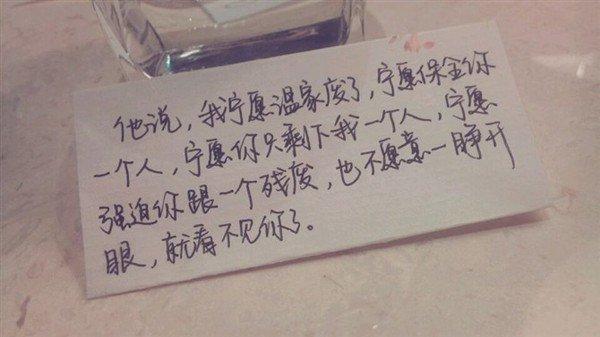 他说，我宁愿温家废了，宁愿保全你
一个人，宁愿你只剩下我一个人，宁愿
强迫你跟一个残废，也不愿意一睁开
眼，就看不见你了。